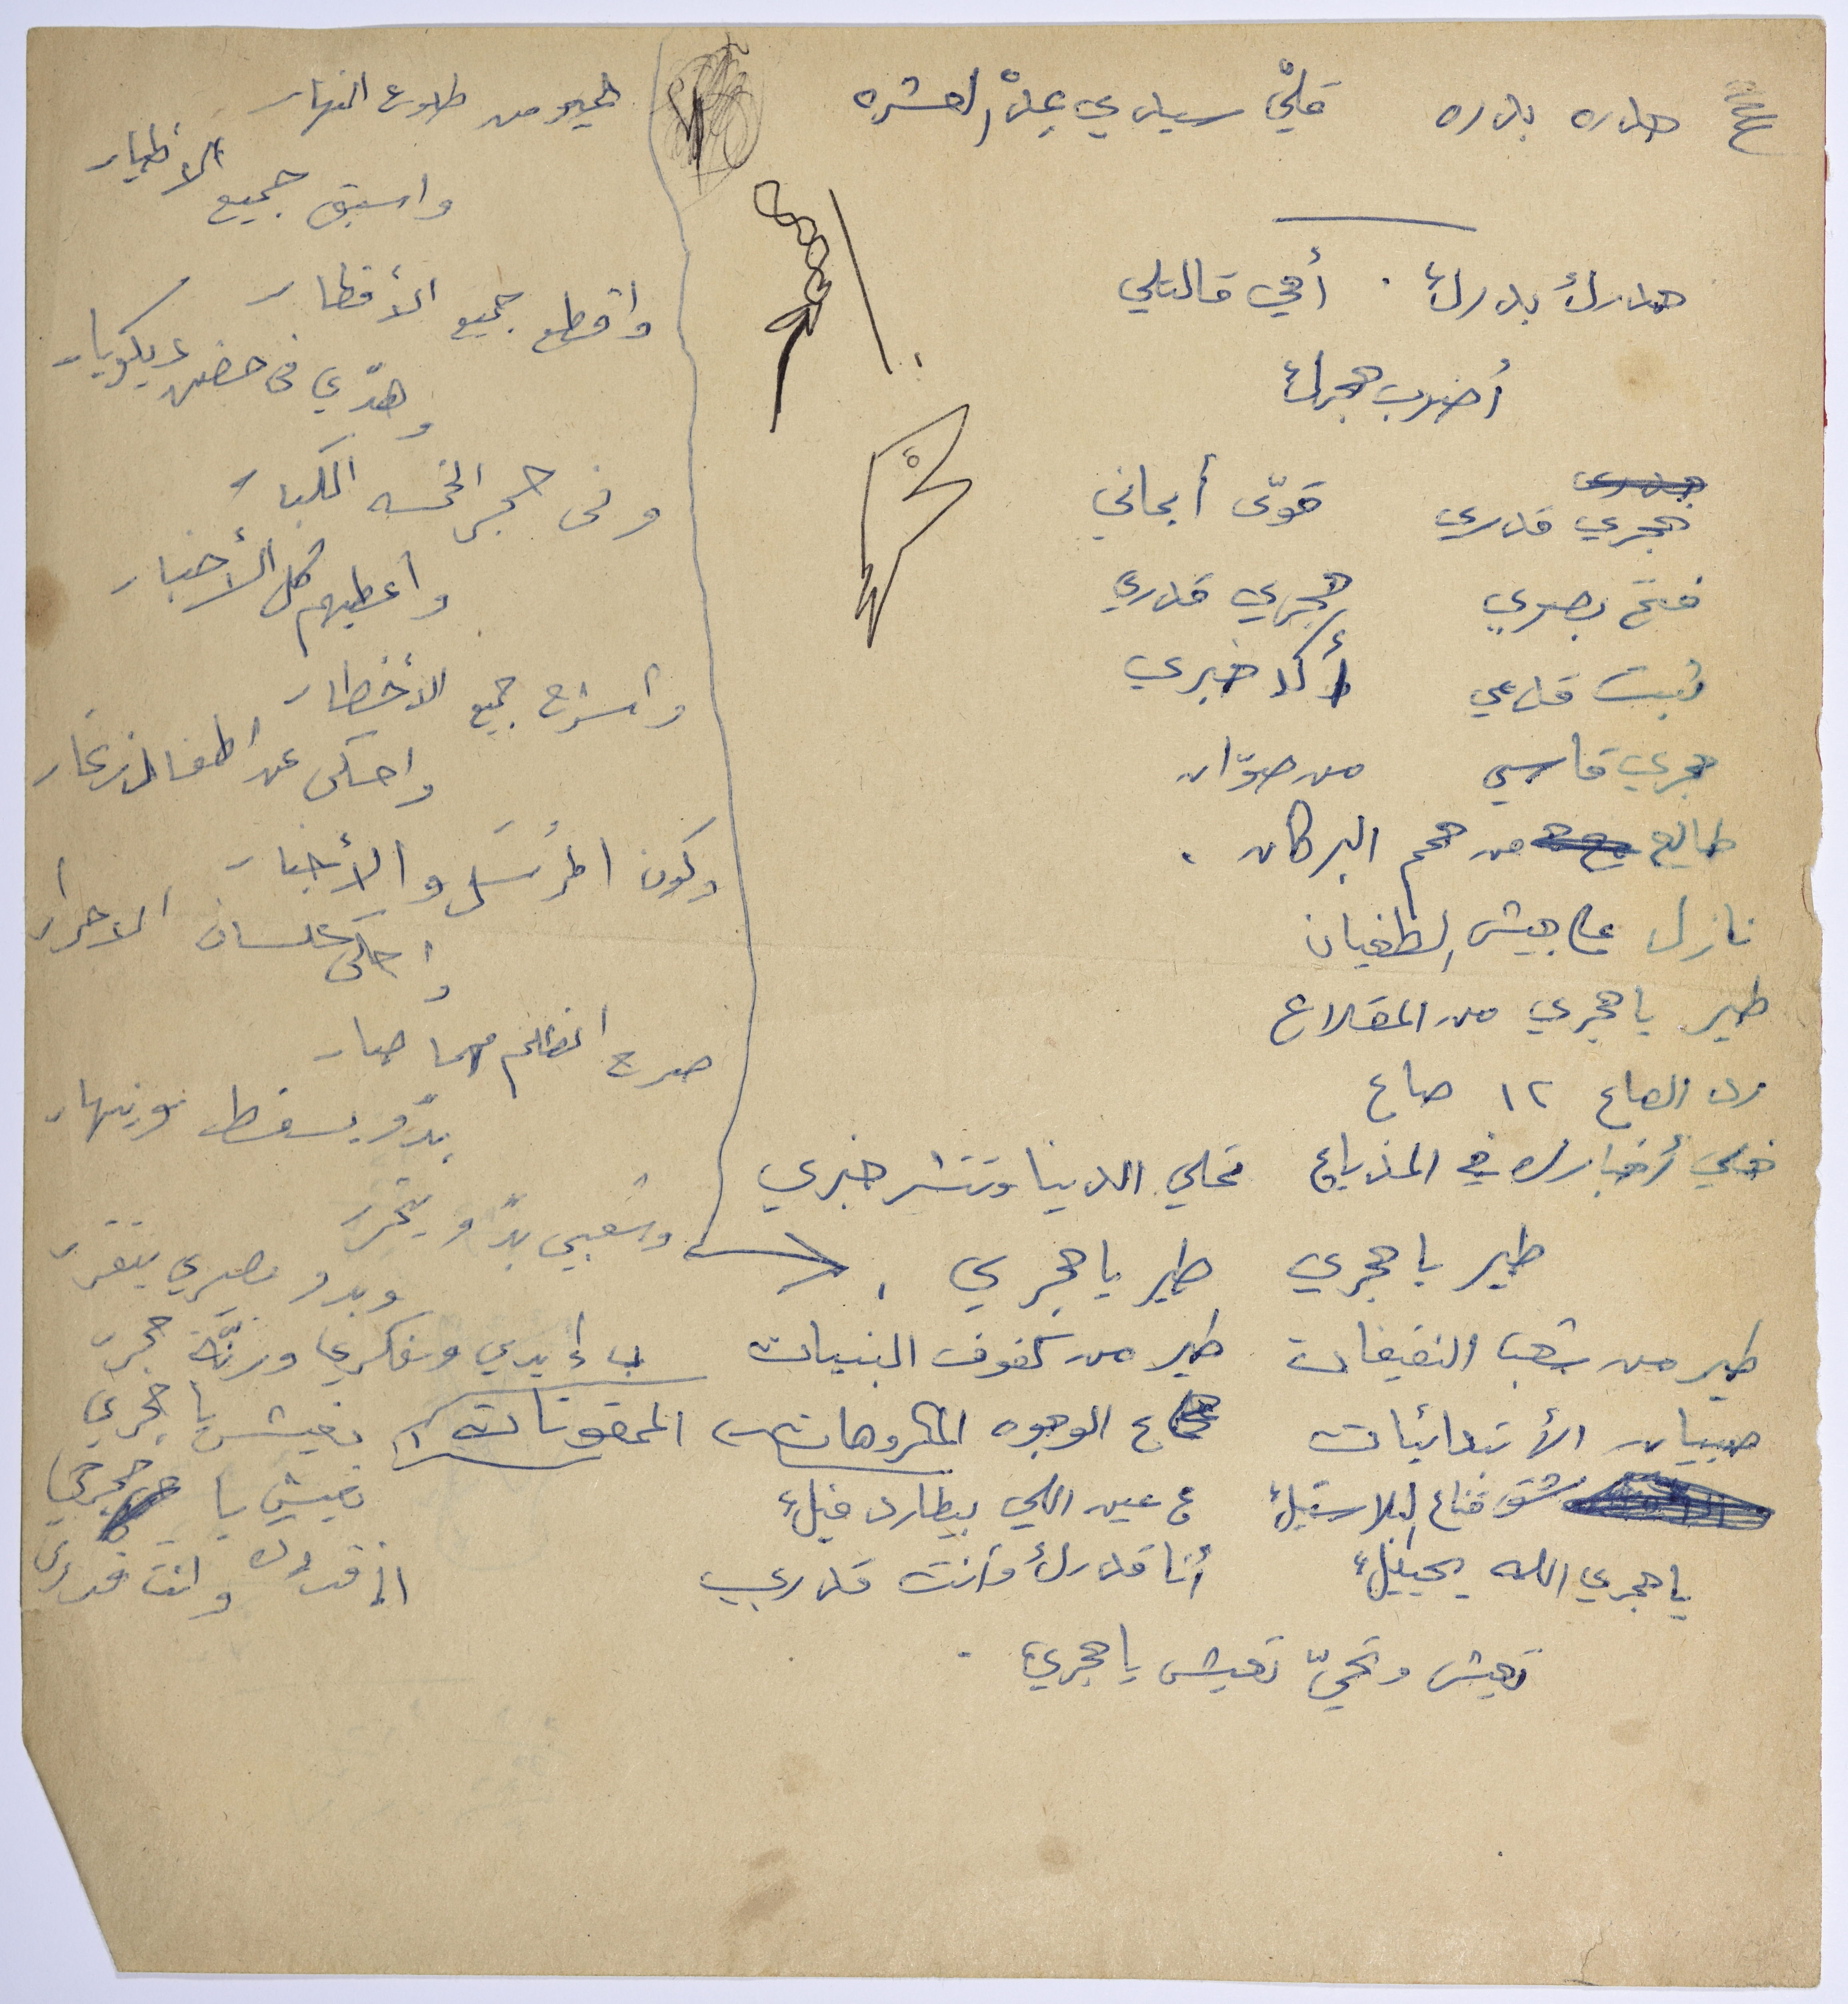 حدره بدره قلّي سيدي عِدْ العشره
حدرك بدرك . أمي قالتلي
أضرب حجرك
حجري قدري قوّى أيماني
فتح بصري حجري قدري
ثبت قدمي أكد خبري
حجري قاسي من صوّان
طالع من حمم البركان .
نازل ع جيش الطغيان
طير يا حجري من المقلاع
رد الصاع ١٢ صاع
خلي أخبارك في المذياع تملي الدنيا وتنشر خبري
طير يا حجري طير يا حجري .
طير من شعب النفيفات طير من كفوف البنيات
صبيان الأبتدائيات ع الوجوه المكروهات الممقوتات
شق قناع البلاستيك ع عين اللي بيطارد فيك
يا حجري الله يحييك أنا قدرك وأنت قدري
تعيش وتحيّ تعيش يا حجري .
طير من طلوع النهار
واسبق جميع الأطيار
واقطع جميع الأقطار
وهدّي في حضن ديكويار
وفي حجر الخمسه الكبار
واعطيهم كل الأخبار
واشرح جميع الأخطار
واحكي عن اطفال زغار
وكون المرسل والأخبار
واحكي بلسان الاحرار
صرح الظلم مهما صار
بدّو يسقط وينهار
وشعبي بدّو يتحرر
وبدو مصيري يتقرر
ب إيدي وفكري ورنّة حجر
تعيش يا حجري
تعيش يا حجري
انا قدرك وانت قدري